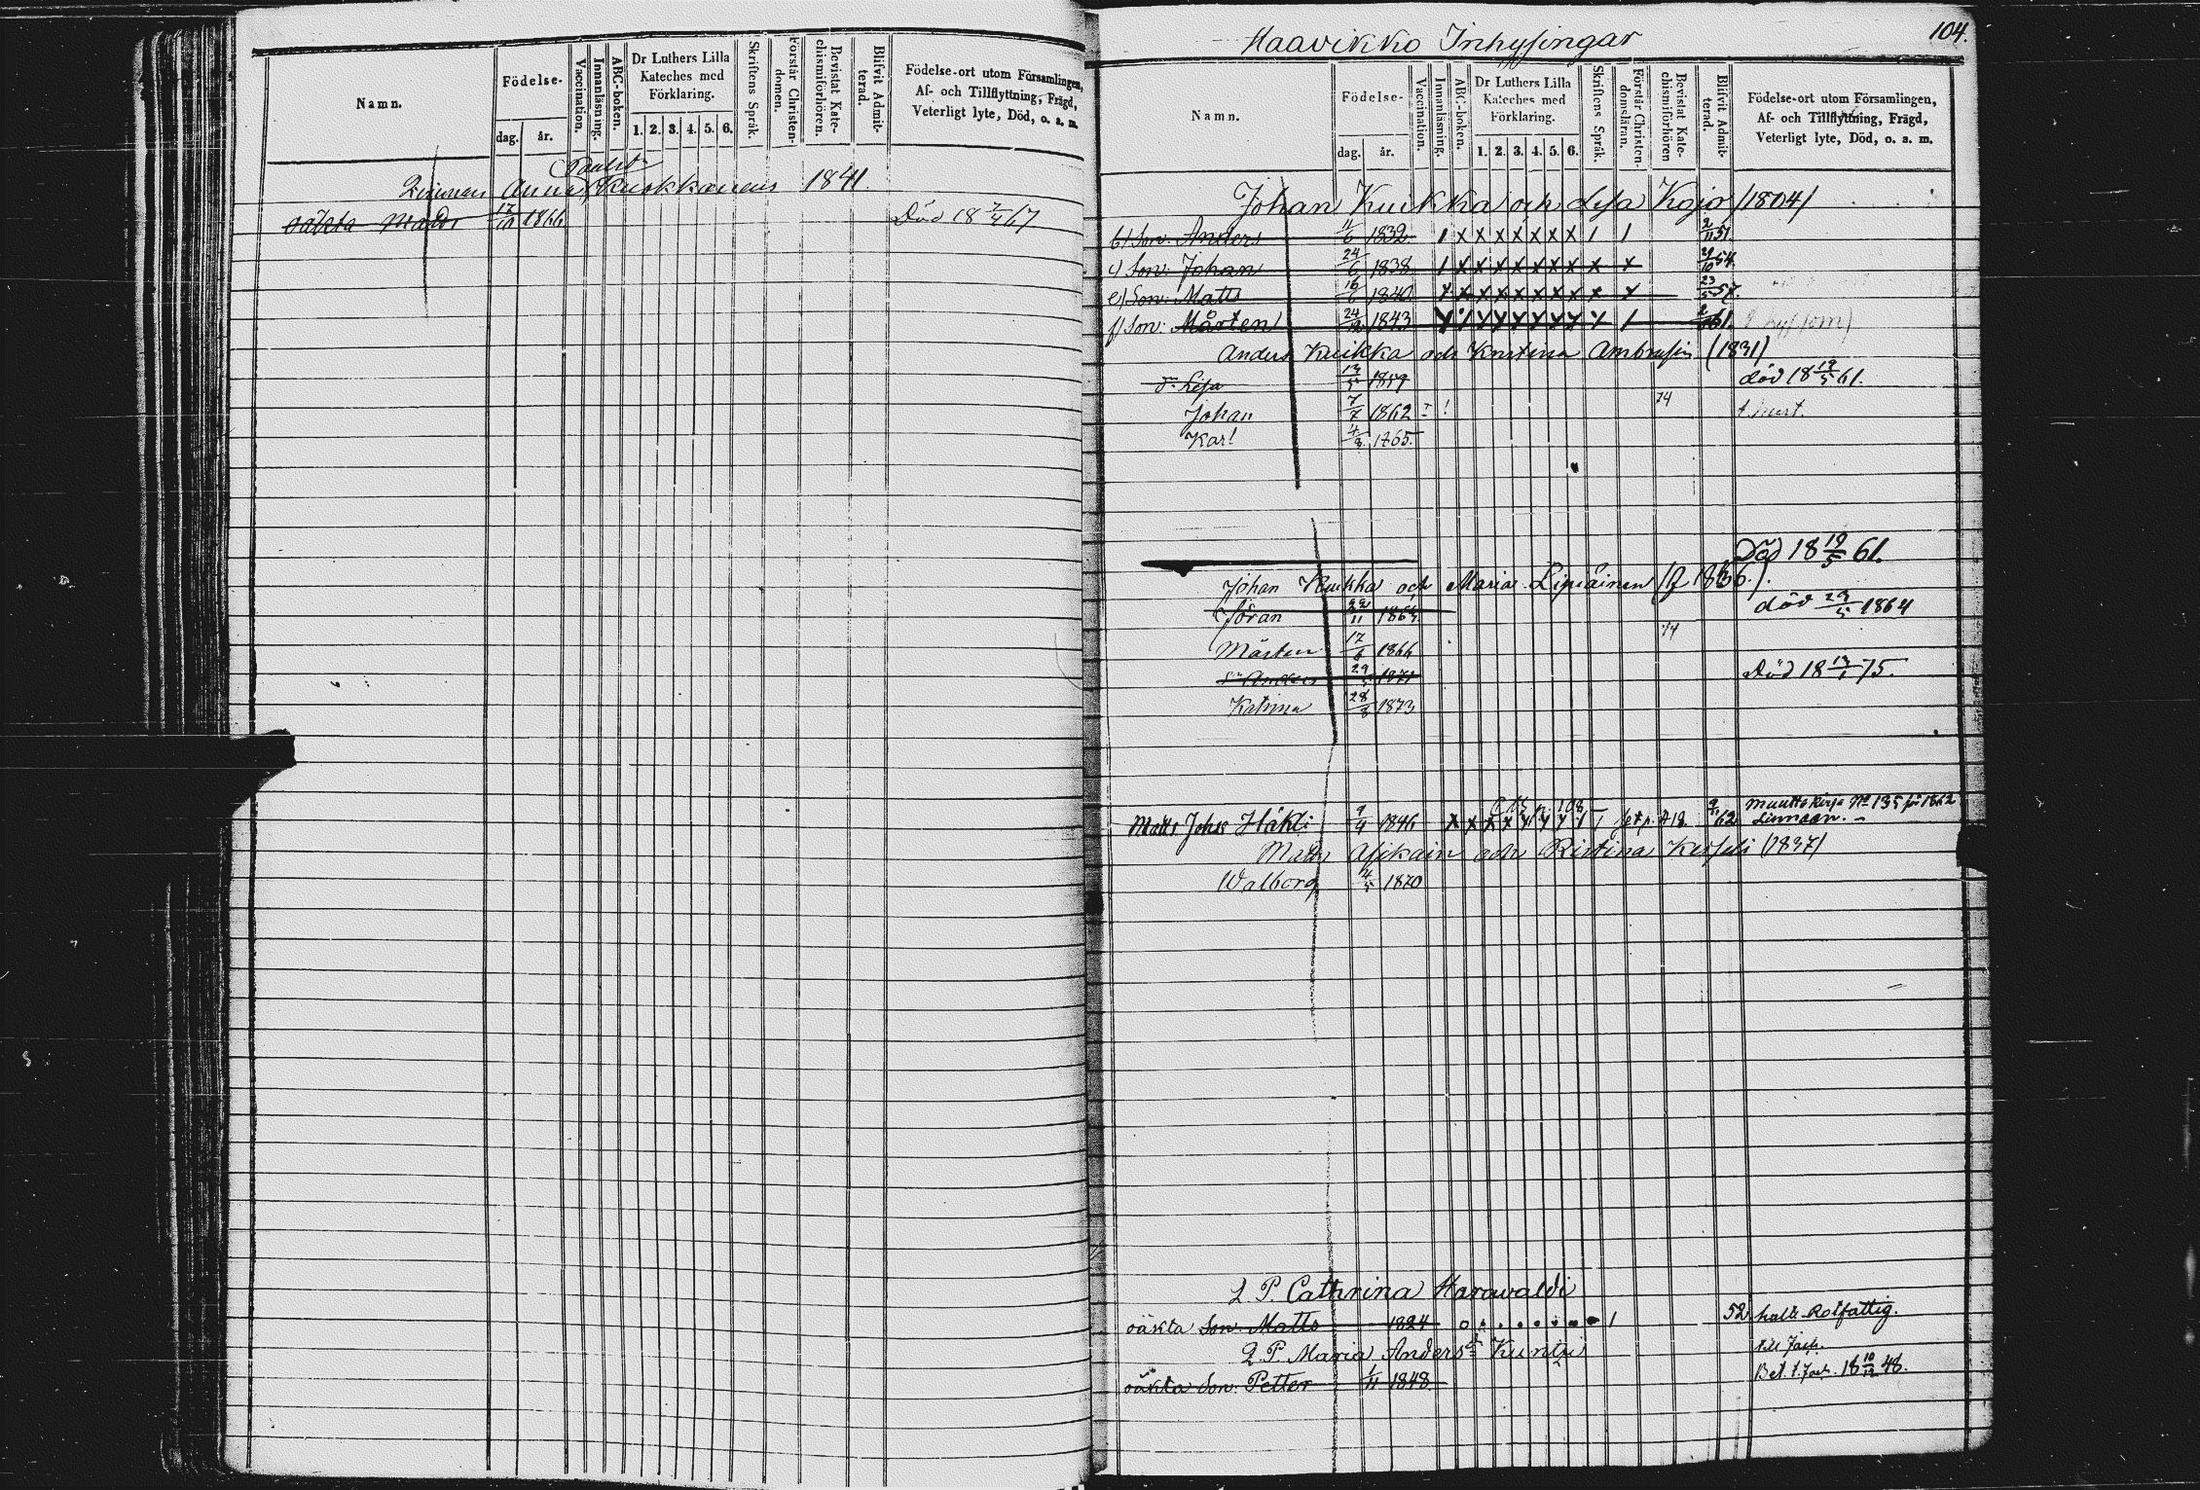 Namn.
Födelse-
dag. år.
Vaccination.
Innanläsning.
ABC-boken.
Dr Luthers Lilla
Kateches med
Förklaring.
1. 2. 3. 4. 5. 6.
Skriftens Språk.
Förstår Christen-
domen.
Bevistat Kate-
chismiförhören.
Blifvit Admit-
terad.
Födelse-ort utom Församlingen,
Af- och Tillflyttning, Frägd,
Veterligt lyte, Död, o. a. m.
Anna 1841.
oäkta Matts 17/10 1866 Död 18 7/4 67
Haavikko Inhysingar
104.
Namn.
Födelse-
dag. år.
Vaccination.
Innanläsning.
ABC-boken.
Dr Luthers Lilla
Kateches med
Förklaring.
1. 2. 3. 4. 5. 6.
Skriftens Språk.
Förstår Christen-
domsläran.
Bevistat Kate-
chismiförhören
Blifvit Admit-
terad.
Födelse-ort utom Församlingen,
Af- och Tillflyttning, Frägd,
Veterligt lyte, Död, o. a. m.
Johan Kuikka och Lisa Kojo /1804/
b) Son: Anders 1832 1 x x x x x x x 1 1 2/11 51.
c) Son: Johan 24/6 1838 1 x x x x x x x x x 54.
e) Son: Matts 16/6 1840 x x x x x x x x x x 23/5 57.
f) Son: Mårten 24/12 1843 61.
Anders Kuikka och Kristina (1831)
d. Lisa 13/5 1859 död 18 19/5 61.
Johan 7/7 1862 74
Karl 4/3 1865.
Död 18 19/5 61.
Johan Kuikka och Maria Lipiäinen
Göran 22/11 1863 död 1864
Mårten 17/6 1866 74
Anders 1871 Död 18 75.
Katrina 28/8 1873
Matts Johss Häkli 9/4 1846 62 muuttokirja No 135 för 1862
Matts och Ristina (1837)
Walborg 1870
Q. P. Cathrina Harawaldi
oäkta Son: Matts 1824 52
Q. P. Maria Anders
oäkta Son: Petter 1/11 1848.